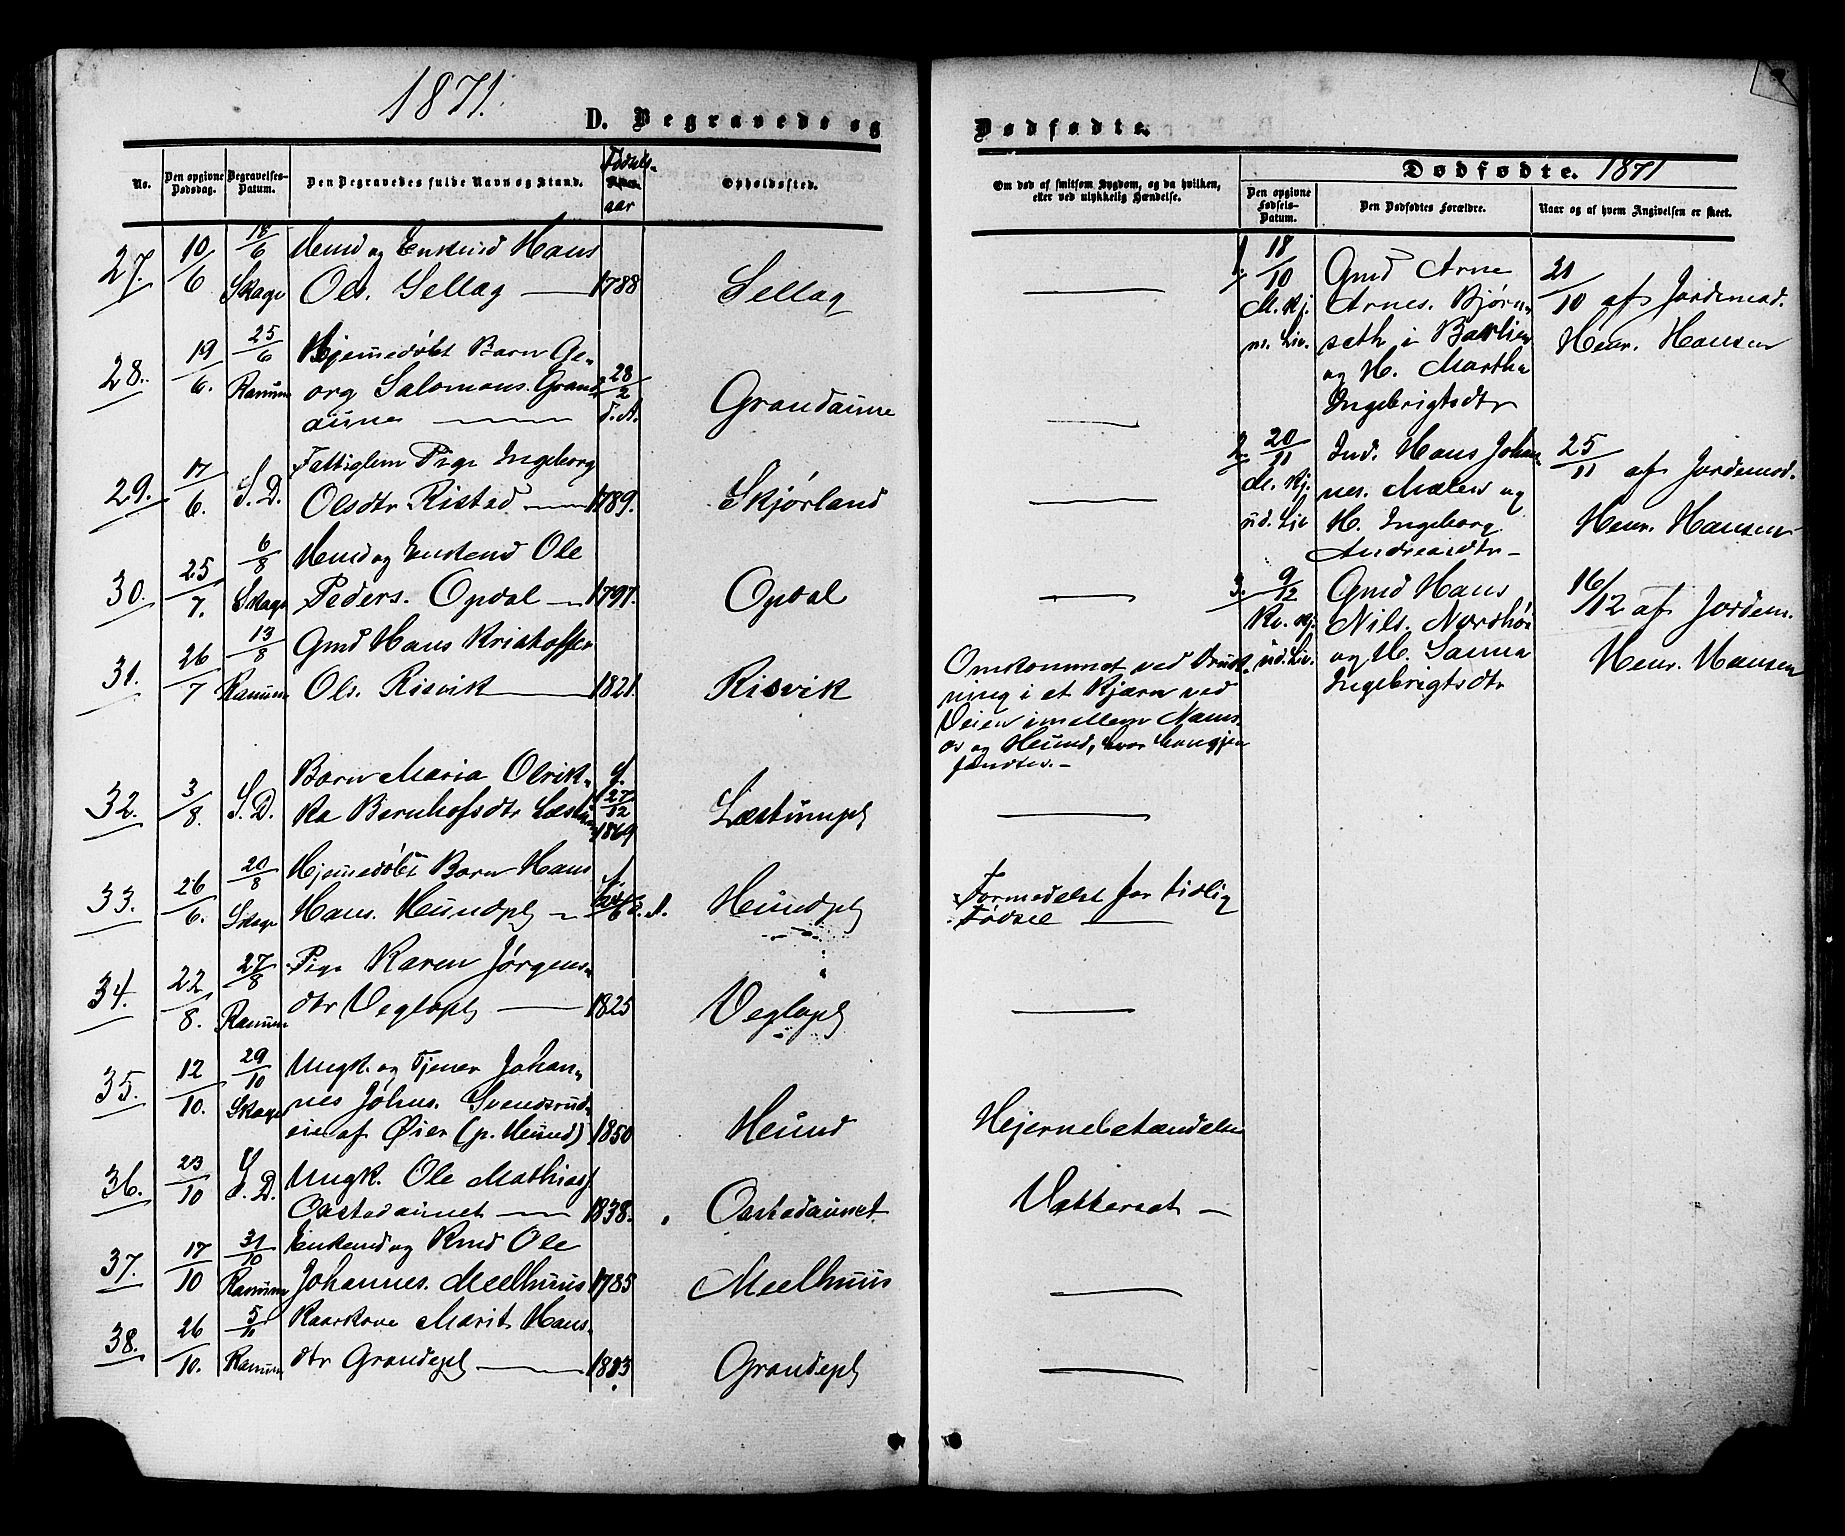 1871.
D. Begravede og
No.
Den opgivne Dødsdag.
Begravelses-Datum.
Den Begravedes fulde Navn og Stand.
Fødsels-
aar
Opholdssted.
27. 10/6 18/6 Mand og Enkemd Hans
Skage Ols. Sellæg 1788 Sellæg
28. 19/6. 25/6 Hjemmedøbt Barn Ge-
Ranum org Salomons. Grand- 28/2 Grandaune
aune d. A.
29. 17/6. S. D. Fattiglem Pige Ingeborg
Olsdtr Ristad 1789. Skjørland
30. 25/7. 6/8 Mand og Enkemd Ole
Skage Peders. Opdal 1797. Opdal
31. 26/7 13/8 Gmd Hans Kristoffer
Ranum Ols. Risvik 1821. Risvik
32. 3/8. S. D. Barn Maria Olrik-
ka Bernhofsdtr 27/12
1869
33. 26/6. 20/8 Hjemmedøbt Barn Hans
Skage Hans. Heundpl d. A. Heundpl
34. 22/8. 27/8 Pige Karen Jørgens-
Ranum dtr Vegløpl 1825 Vegløpl
35. 12/10. 29/10 Ungk. og Tjener Johan-
Skage nes Johns. Svendsrud-
eie af Øier (p. Heund) 1850 Heund
36. 23/10 S. D. Ungk. Ole Mathias
Oastadaunet 1838. Oastadaunet
37. 17/10 31/10 Enkemd og Kmd Ole
Ranum Johannes. Meelhuus 1785 Meelhuus
38. 26/10. 5/11 Kaarkone Marit Hans-
Ranum dtr Grandepl Grandepl
Dødfødte.
Om død af smitsom Sygdom, og da hvilken,
eller ved ulykkelig Hændelse.
Omkommet ved Drukk-
ning i et Kjærn ved
Veien imellem Nams-
os og Heund, hvor han gjen
fandtes.
Formedelst for tidlig
Fødsel
Hjernebetændelse
Vattersot
Dødfødte. 1871
Den opgivne Fødsels-Datum.
Den Dødfødtes Forældre.
Naar og af hvem Angivelsen er skeet.
1. 18/10 Gmd Arne 21/10 af Jordemod.
M. kj. Arnes. Bjørn- Henr. Hansen
u. Liv. seth i
og H. Martha
Ingebrigtsdtr
2. 20/11 Ind. Hans Johan- 25/11 af Jordemod.
M. kj. nes. Mælen og Henr. Hansen
ud. Liv H. Ingeborg
Andreasdtr
3. 9/12 Gmd Hans 16/12 af Jordem.
Kv. kj. Nils. Henr. Hansen
ud. Liv. og H. Sanna
Ingebrigtsdtr